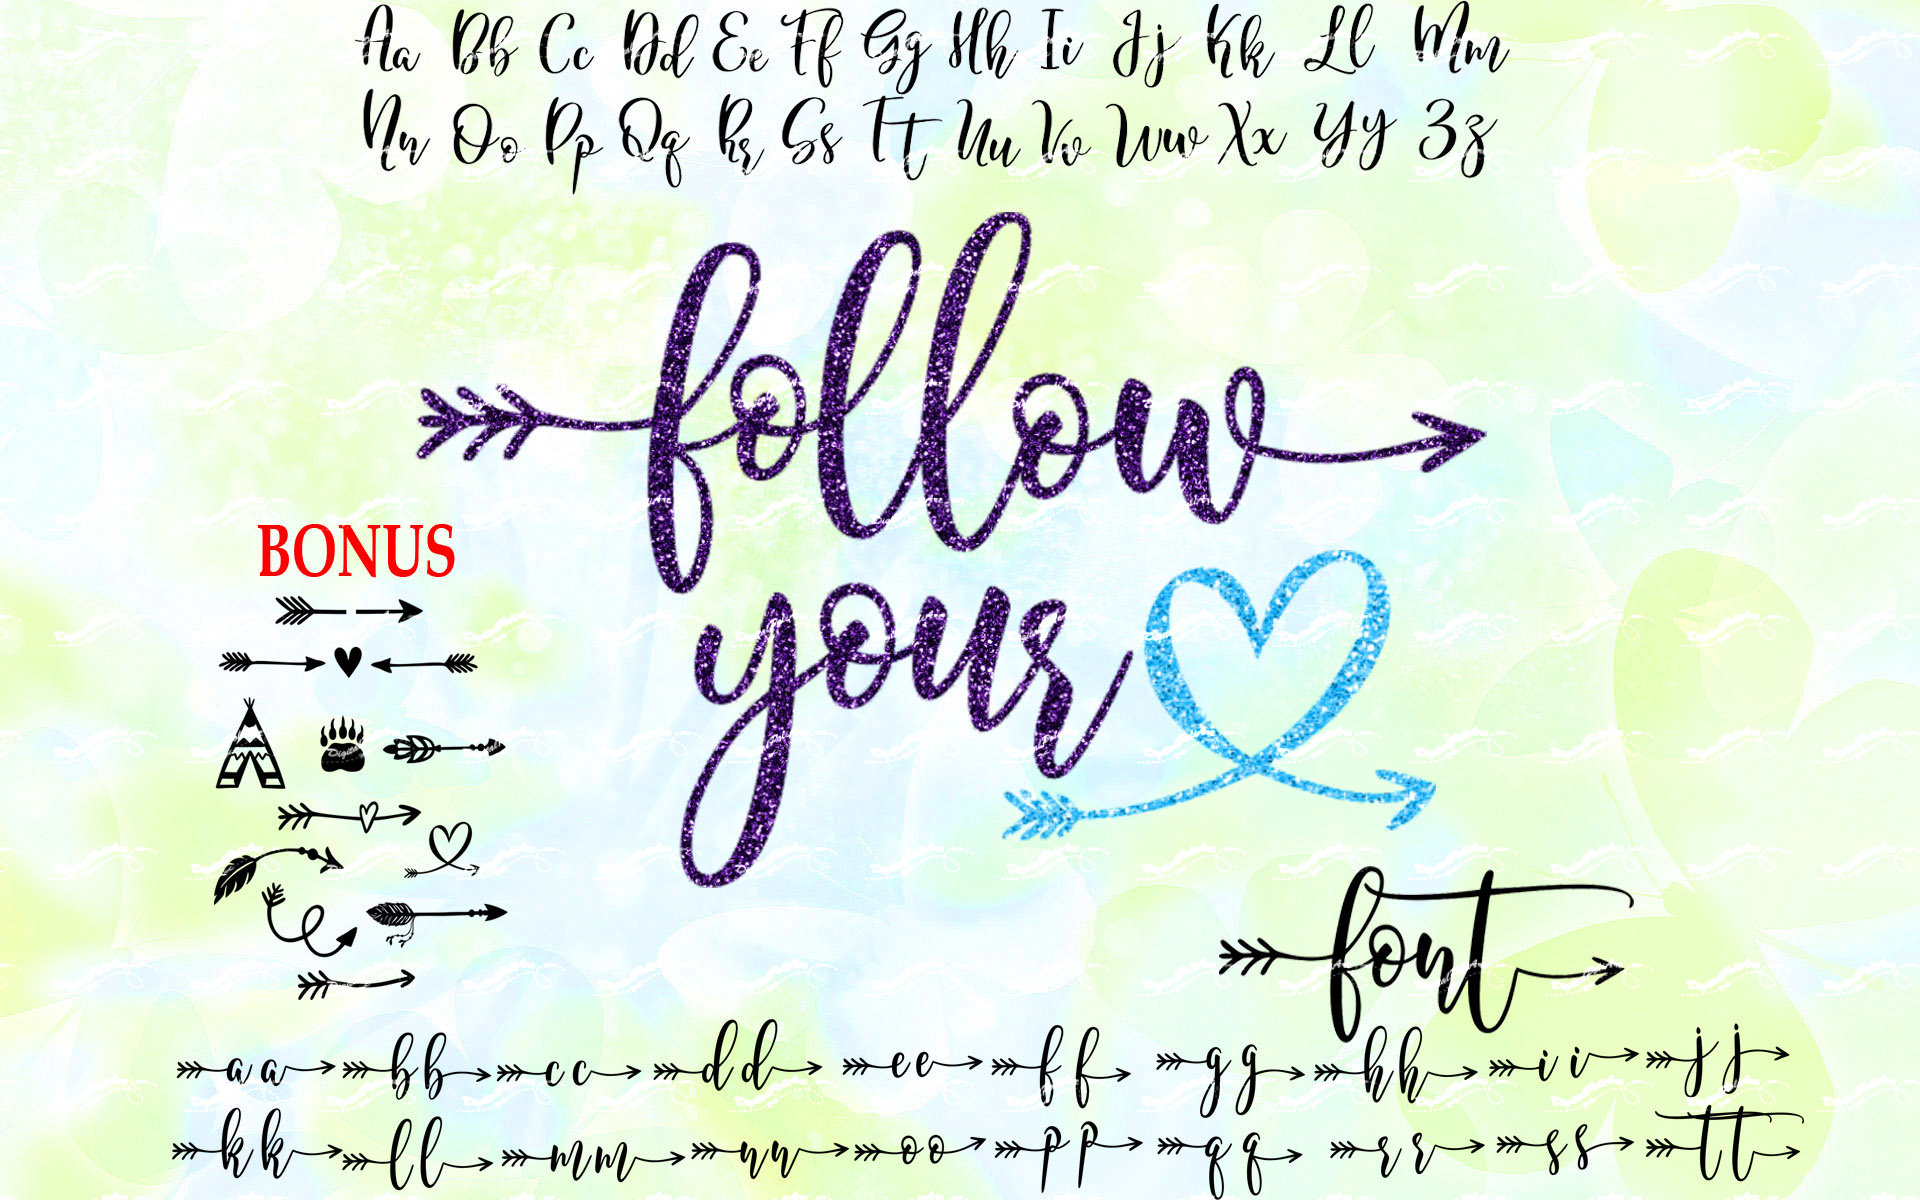 Aa Bb Cc Dd Ee Ff Gg Hh Ii Jj Kk Ll Mm
Nn Oo Pp Qq Rr Ss Tt Uu Vv Ww Xx Yy Zz
follow
your
BONUS
font
aa bb cc dd ee ff gg hh ii jj
kk ll mm nn oo pp qq rr ss tt